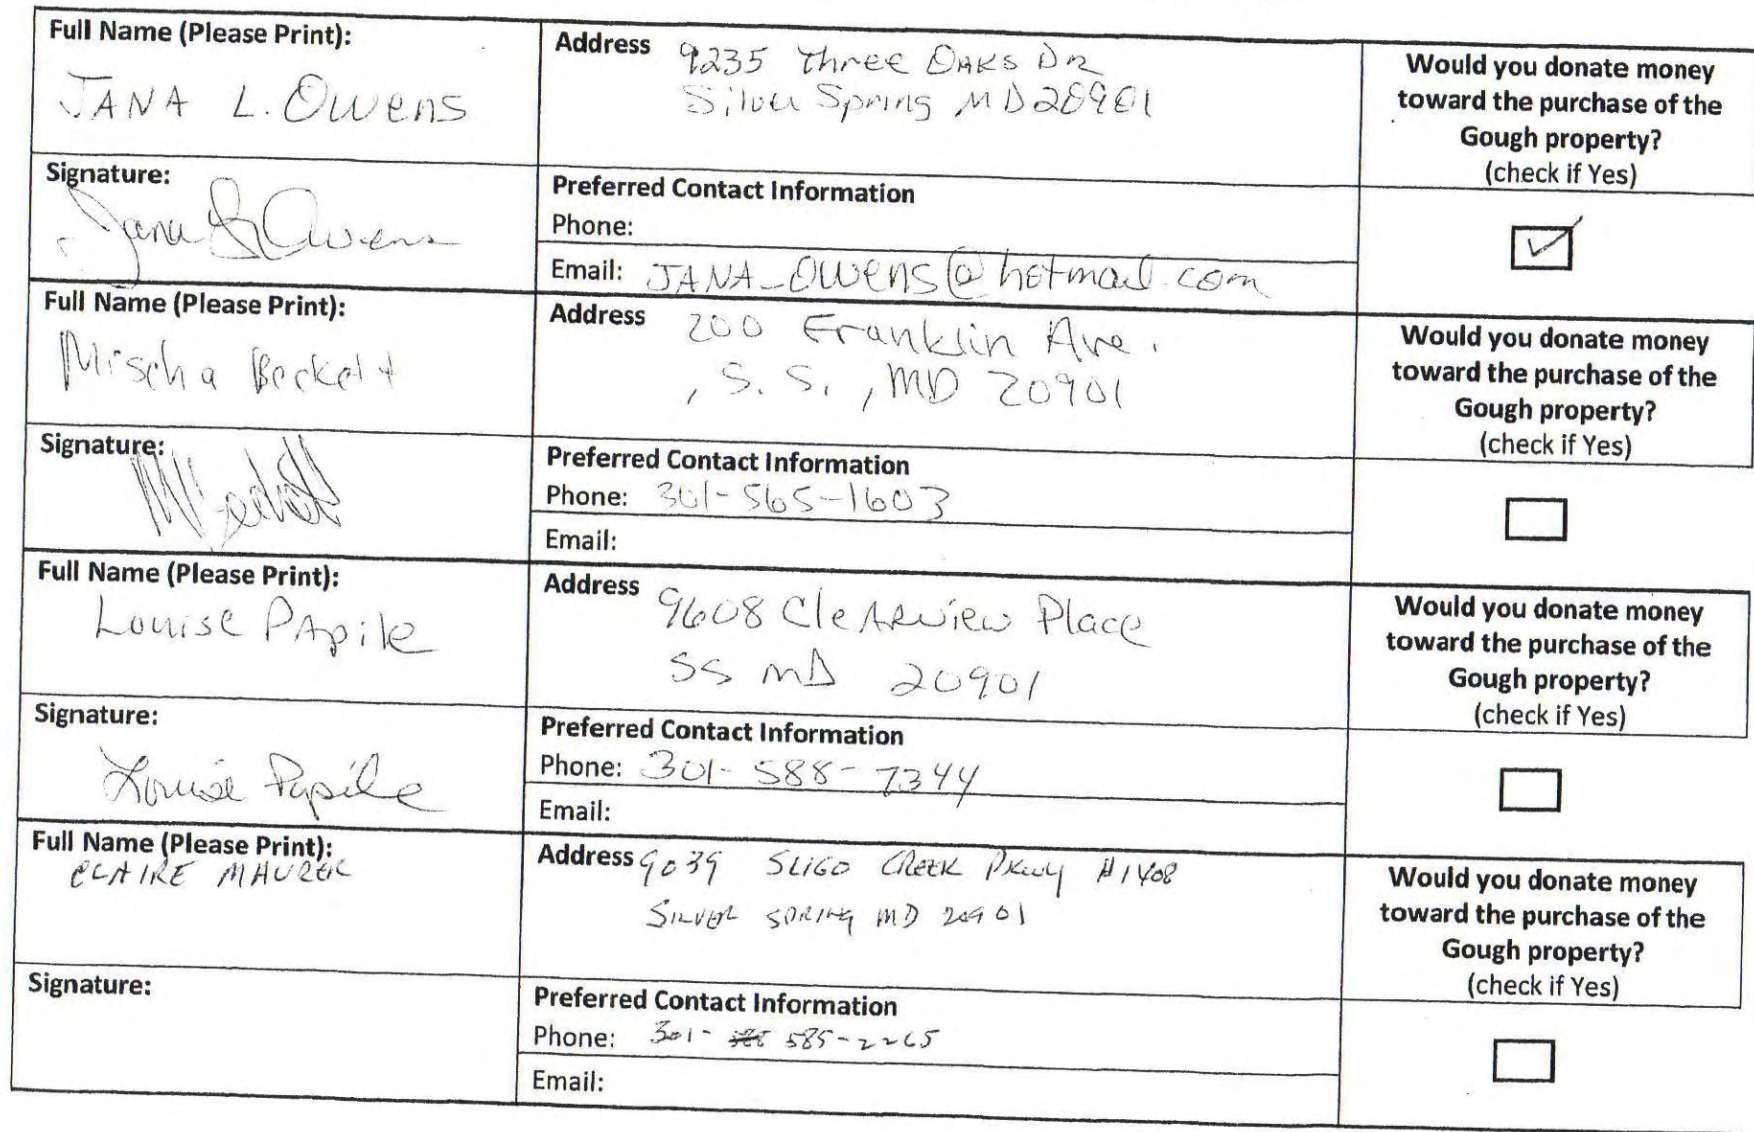 Full Name (Please Print):
JANA L. Owens
Address 9235 Three OAKS DR
Silver Spring MD 20901
Would you donate money
toward the purchase of the
Gough property?
(check if Yes)
Signature:
Jana L Owens
Preferred Contact Information
Phone:
Email: JANA_Owens@hotmail.com
Full Name (Please Print):
Mischa Beckett
Address 200 Franklin Ave.
, S. S., MD 20901
Would you donate money
toward the purchase of the
Gough property?
(check if Yes)
Signature:
Preferred Contact Information
Phone: 301-565-1603
Email:
Full Name (Please Print):
Louise PApile
Address 9608 CleARview Place
SS MD 20901
Would you donate money
toward the purchase of the
Gough property?
(check if Yes)
Signature:
Louise Papile
Preferred Contact Information
Phone: 301-588-7344
Email:
Full Name (Please Print):
CLAIRE MAURER
Address 9039 SLIGO CREEK PKWY #1408
SILVER SPRING MD 20901
Would you donate money
toward the purchase of the
Gough property?
(check if Yes)
Signature:
Preferred Contact Information
Phone: 301- 585-2265
Email: